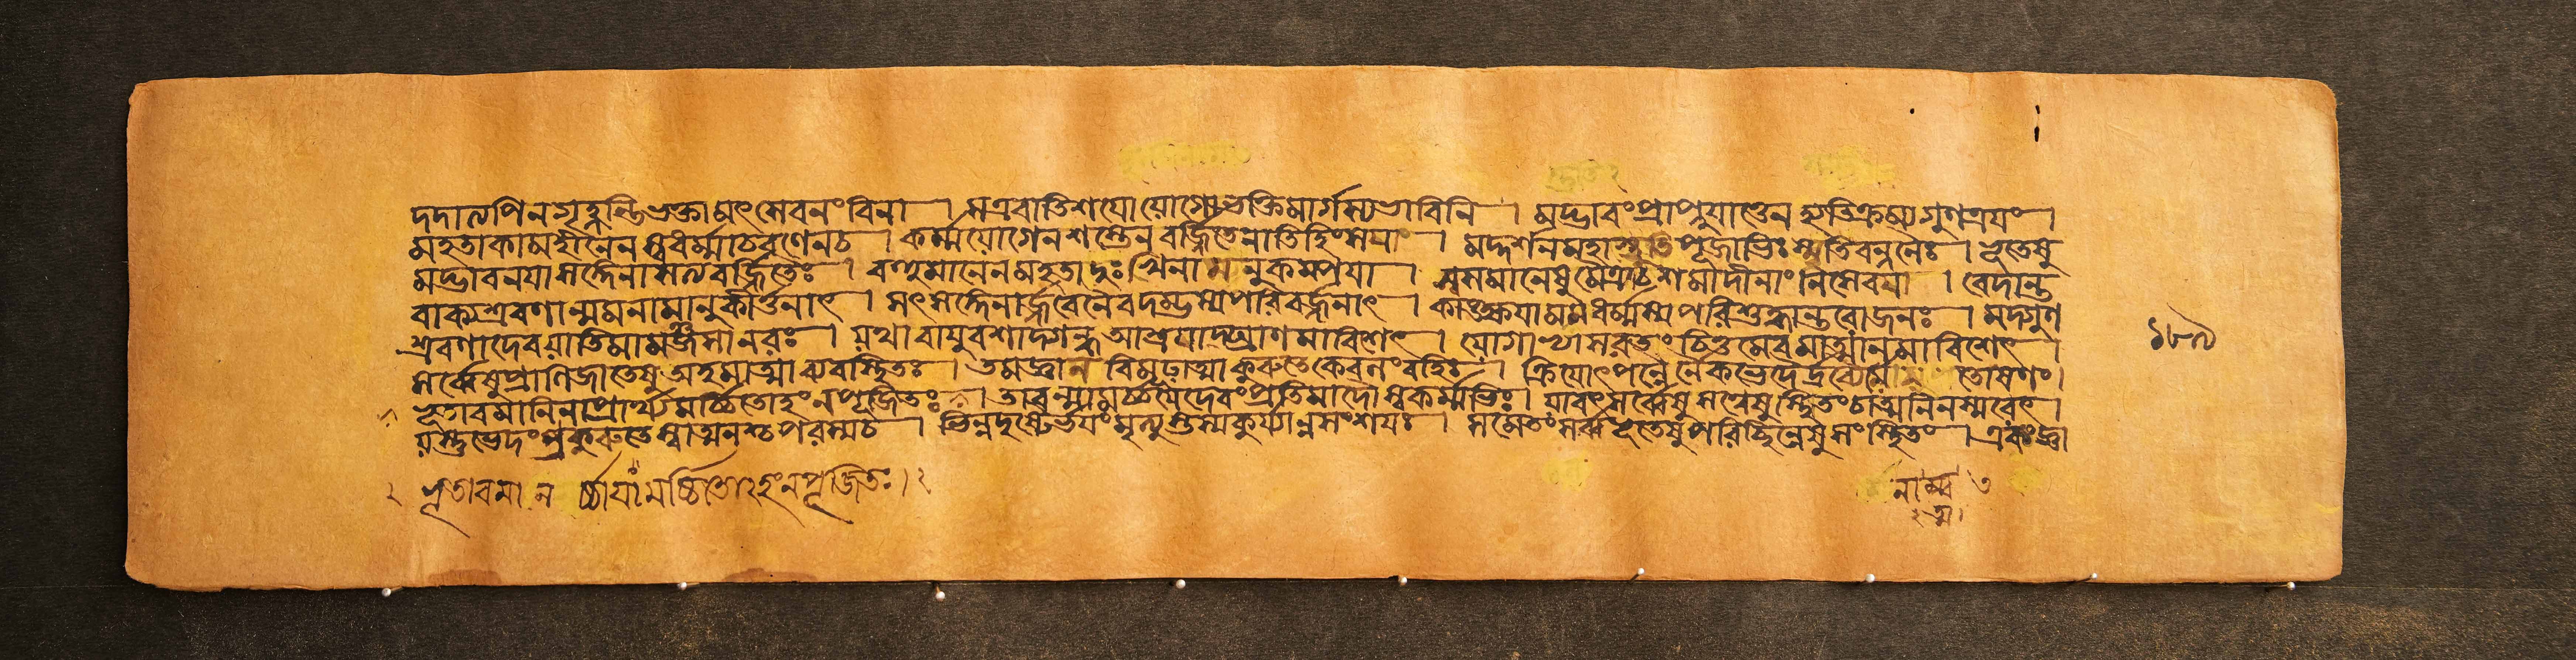 দদাত্যপিনগৃহ্ণন্তিভক্তামৎসেবনংবিনা । সএবাতিশযোযোগোভক্তিমার্গস্যভাবিনি । মদ্ভাবংপ্রাপ্নুযাত্তেন হ্যতিক্রম্যগুণত্রযং ।
মহতাকামহীনেনস্বধর্ম্মাচরণেনচ । কর্ম্মযোগেনশস্তেনবর্জ্জিতেনাতিহিংসযা । মদ্দর্শনমহাস্তুতিপূজাভিঃস্মৃতিবন্দনৈঃ । ভূতেষু
মদ্ভাবনযাসঙ্গেনাসত্যবর্জ্জিতৈঃ । বহুমানেনমহতাদুঃখিনামনুকম্পযা । স্বসমানেষুমৈত্র্যাচযমাদীনাংনিসেবযা । বেদান্ত
বাক্যশ্রবণান্মমনামানুকীর্ত্তনাৎ । সৎসঙ্গেনার্জ্জবেনৈব পরিবর্জ্জনাৎ । কাঙ্ক্ষযামমধর্ম্মস্যপরিশুদ্ধান্তরোজনঃ । মদ্গুণ
শ্রবণাদেবযাতিমামঞ্জসানরঃ । যথাবাযুবশাদ্গন্ধআশ্রযাদ্ঘ্রাণমাবিশেৎ । যোগাভ্যাসরতংচিত্তমেবমাত্মানমাবিশেৎ ।
সর্ব্বেষুপ্রাণিজাতেষুঅহমাত্মাব্যবস্থিতঃ । তমজ্ঞাত্বা বিমূঢাত্মাকুরুতেকেবলংবহিঃ । ক্রিযোৎপন্নৈর্নৈকভেদৈর্দ্রব্যৈর্মে তোষণং।
ভূতাবমানিনাপ্রার্থ্যমর্চ্চিতোহংনপূজিতঃ । তাবন্মামর্চ্চযেদ্দেবংপ্রতিমাদৌস্বকর্ম্মভিঃ । যাবৎসর্ব্বেষুসত্বেষুস্থিতংচাত্মনিনস্মরেৎ ।
যস্তুভেদংপ্রকুরুতেস্বাত্মনশ্চপরস্যচ । ভিন্নদৃষ্টের্ভযংমৃত্যুস্তস্যকুর্য্যান্নসংশযঃ । সর্ব্বভূতেষুপরিচ্ছিন্নেষুসংস্থিতং । একংজ্ঞা
১৮৯
২ ভূতাবমান র্চ্চাযাংমর্চ্চিতোঽহংনপূজিতঃ।২
নাম্ব ৩
২ত্ম।